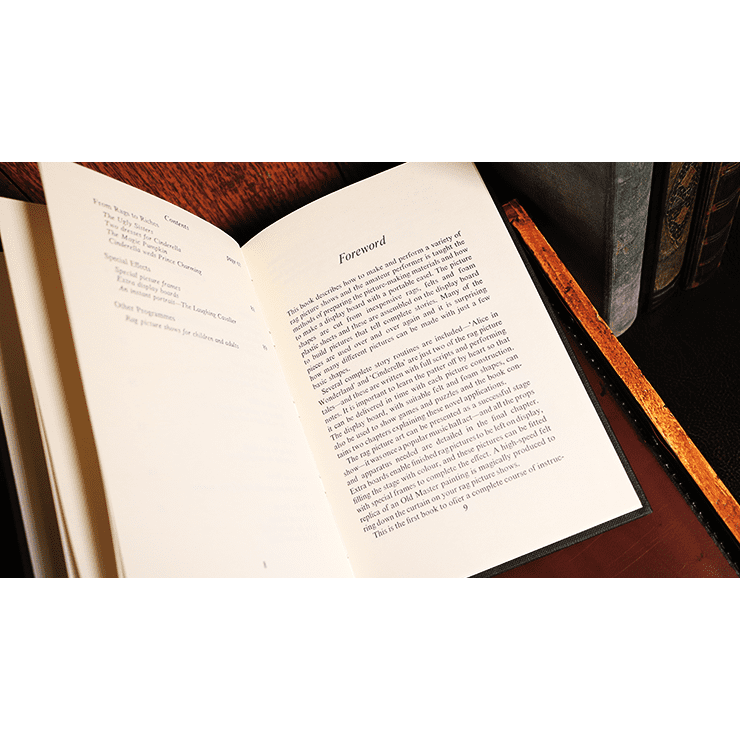 Contents
From Rags to Riches
The Ugly Sisters
Two dresses for Cinderella
The Magic Pumpkin
Cinderella weds Prince Charming
Special Effects
Special picture frames
Extra display boards
An instant portrait—The Laughing Cavalier
Other Programmes
Rag picture shows for children and adults
Foreword
This book describes how to make and perform a variety of
rag picture shows and the amateur performer is taught the
methods of preparing the picture-making materials and how
to make a display board with a portable easel. The picture
shapes are cut from inexpensive rags, felts and foam
plastic sheets and these are assembled on the display board
to build pictures that tell complete stories. Many of the
pieces are used over and over again and it is surprising
how many different pictures can be made with just a few
basic shapes.
Several complete story routines are included—'Alice in
Wonderland' and 'Cinderella' are just two of the rag picture
tales—and these are written with full scripts and performing
notes. It is important to learn the patter off by heart so that
it can be delivered in time with each picture construction.
The display board, with suitable felt and foam shapes, can
also be used to show games and puzzles and the book con-
tains two chapters explaining these novel applications.
The rag picture art can be presented as a successful stage
show—it was once a popular music hall act—and all the props
and apparatus needed are detailed in the final chapter.
Extra boards enable finished rag pictures to be left on display,
filling the stage with colour, and these pictures can be fitted
with special frames to complete the effect. A high-speed felt
replica of an Old Master painting is magically produced to
ring down the curtain on your rag picture shows.
This is the first book to offer a complete course of instruc-
9